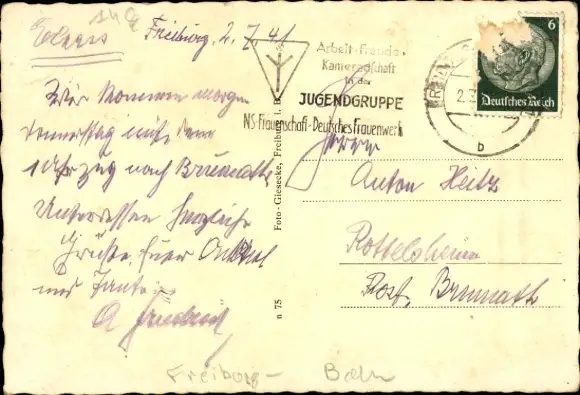 Elsass
Freiburg, 2.7.41
Wir kommen morgen
Donnerstag mit dem
1 Uhr zug nach Brumath.
Unterdessen herzliche
Grüße fuer Onkel
und Tante
Arbeit · Freude ·
Kameradschaft
in der
JUGENDGRUPPE
NS-Frauenschaft - Deutsches Frauenwerk
6
Deutsches Reich
b
Foto-Giesecke, Freiburg i. B.
n 75
Herrn
Anton Heitz
Rottelsheim
Post Brumath
Freiburg - Baden